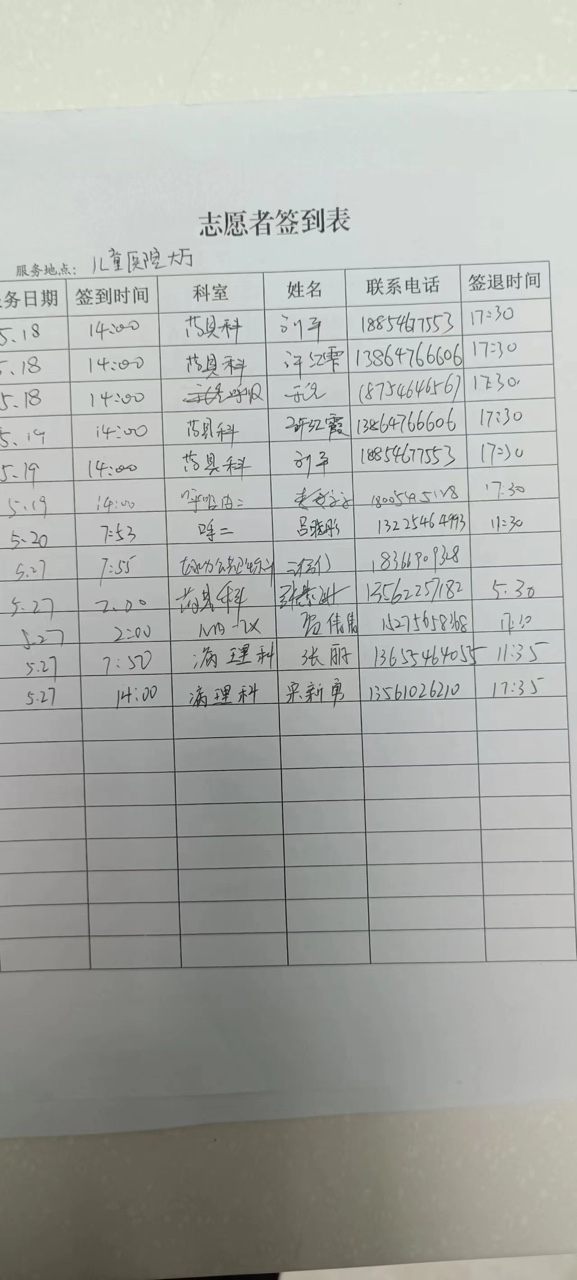 志愿者签到表
服务地点: 儿童医院大厅
务日期 签到时间 科室 姓名 联系电话 签退时间
5.18 14:00 药具科 刘平 18854677553 17:30
5.18 14:00 药具科 许红霞 13864766606 17:30
5.18 14:00 呼吸 18754646567 17:30
5.19 14:00 药具科 许红霞 13864766606 17:30
5.19 14:00 药具科 刘平 18854677553 17:30
5.19 14:00 呼吸内二 17:30
5.20 7:53 呼二 吕晓彤 13225464993 11:30
5.27 7:55 18366909348
5.27 2:00 药具科 13562257182 5:30
5.27 2:00 贺倩倩 15275658368
5.27 7:50 病理科 张丽 13655464055 11:35
5.27 14:00 病理科 梁新勇 13561026210 17:35